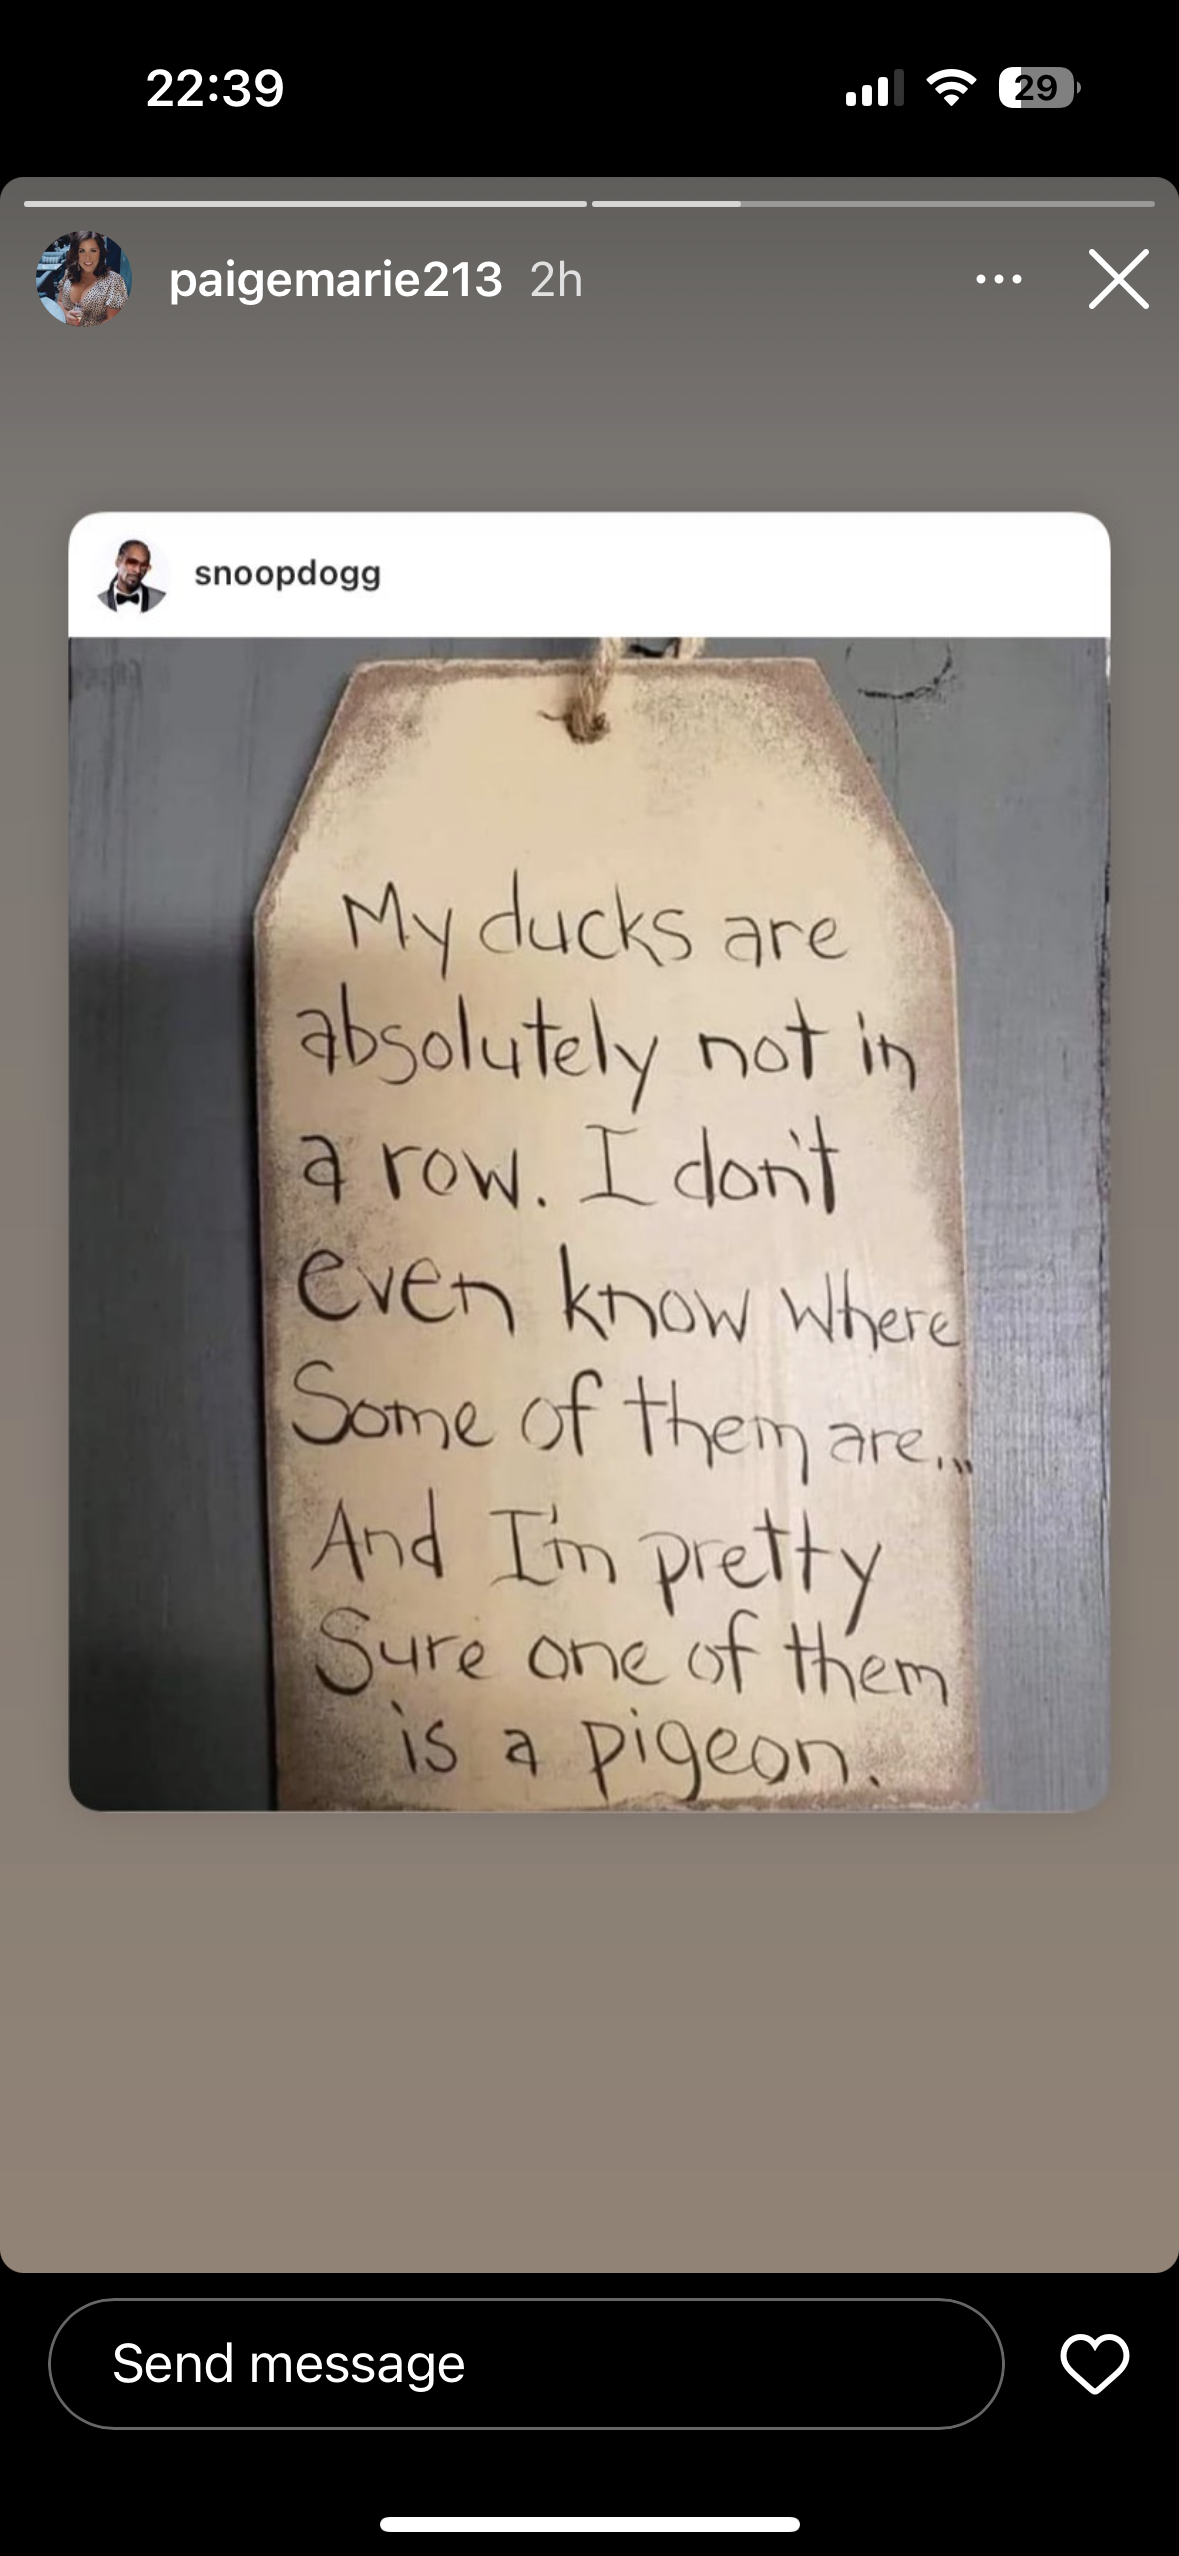 22:39
29
paigemarie213 2h
snoopdogg
My ducks are
absolutely not in
a row. I don't
even know where
Some of them are...
And I'm pretty
Sure one of them
is a pigeon.
Send message